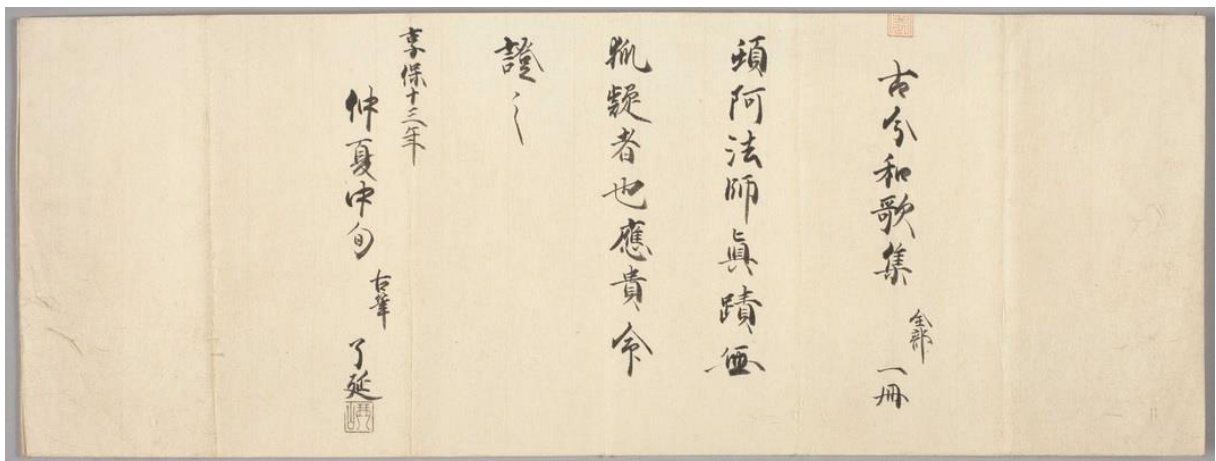 古今和歌集 全部 一冊
頓阿法師眞蹟無
狐疑者也應貴命
證之
享保十三年
仲夏中旬
古筆 了延